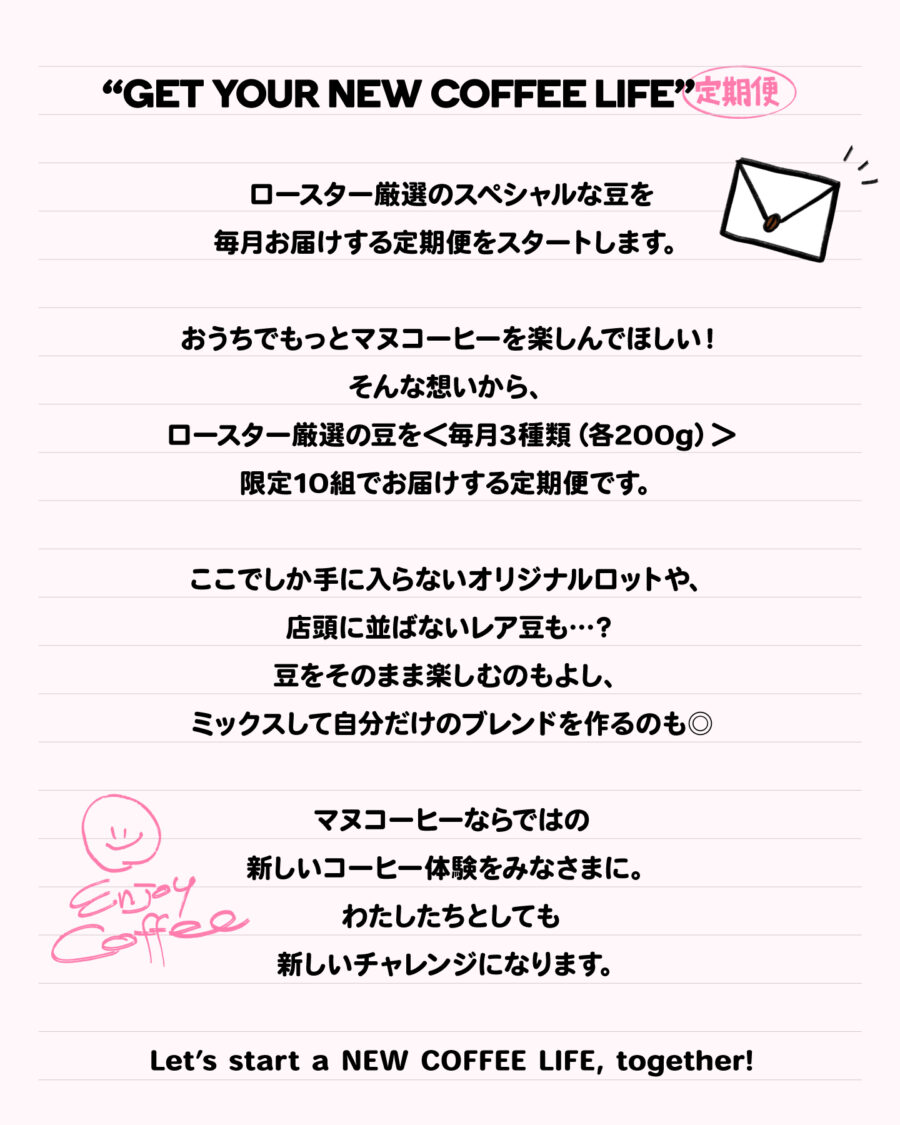 “GET YOUR NEW COFFEE LIFE”定期便
ロースター厳選のスペシャルな豆を
毎月お届けする定期便をスタートします。
おうちでもっとマヌコーヒーを楽しんでほしい！
そんな想いから、
ロースター厳選の豆を＜毎月3種類（各200g）＞
限定10組でお届けする定期便です。
ここでしか手に入らないオリジナルロットや、
店頭に並ばないレア豆も…？
豆をそのまま楽しむのもよし、
ミックスして自分だけのブレンドを作るのも◎
マヌコーヒーならではの
新しいコーヒー体験をみなさまに。
わたしたちとしても
新しいチャレンジになります。
Enjoy
Coffee
Let’s start a NEW COFFEE LIFE, together!